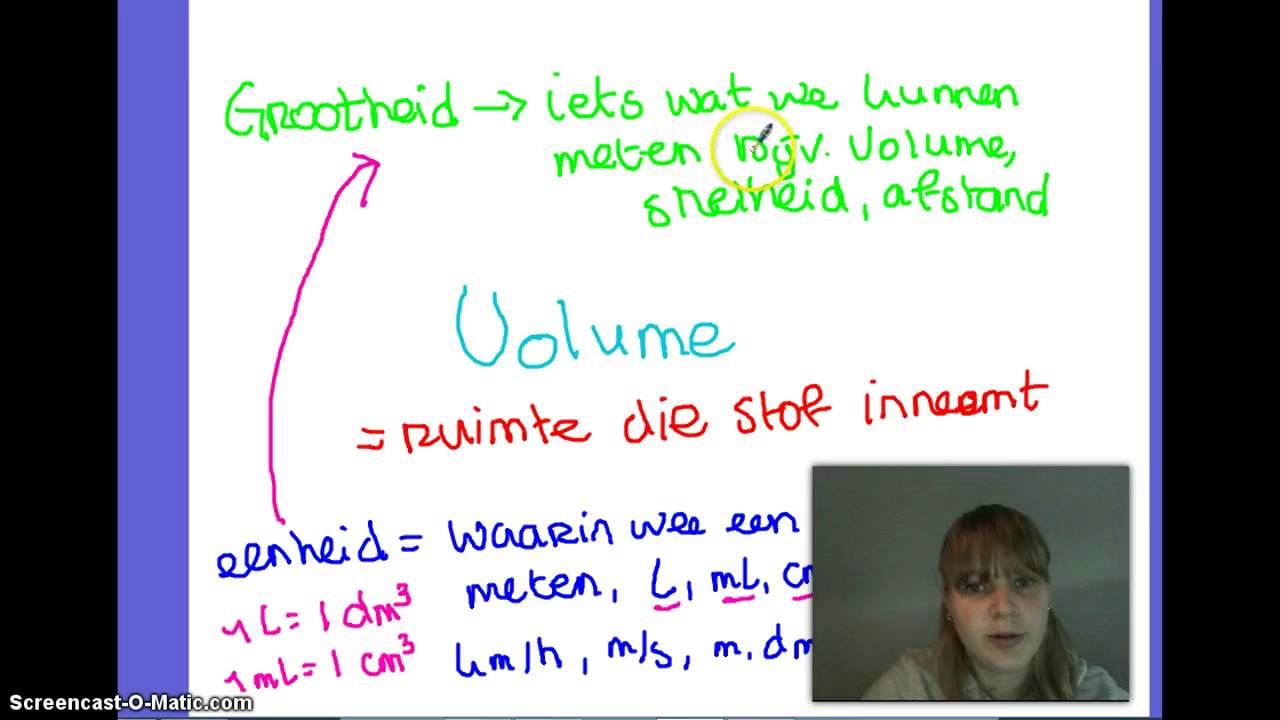 Grootheid → iets wat we kunnen
meten bijv. Volume,
snelheid, afstand
Volume
= ruimte die stof inneemt
eenheid = waarin wee een
meten, L, mL, cm
1 L = 1 dm³
1 mL = 1 cm³
km/h, m/s, m, dm
Screencast-O-Matic.com